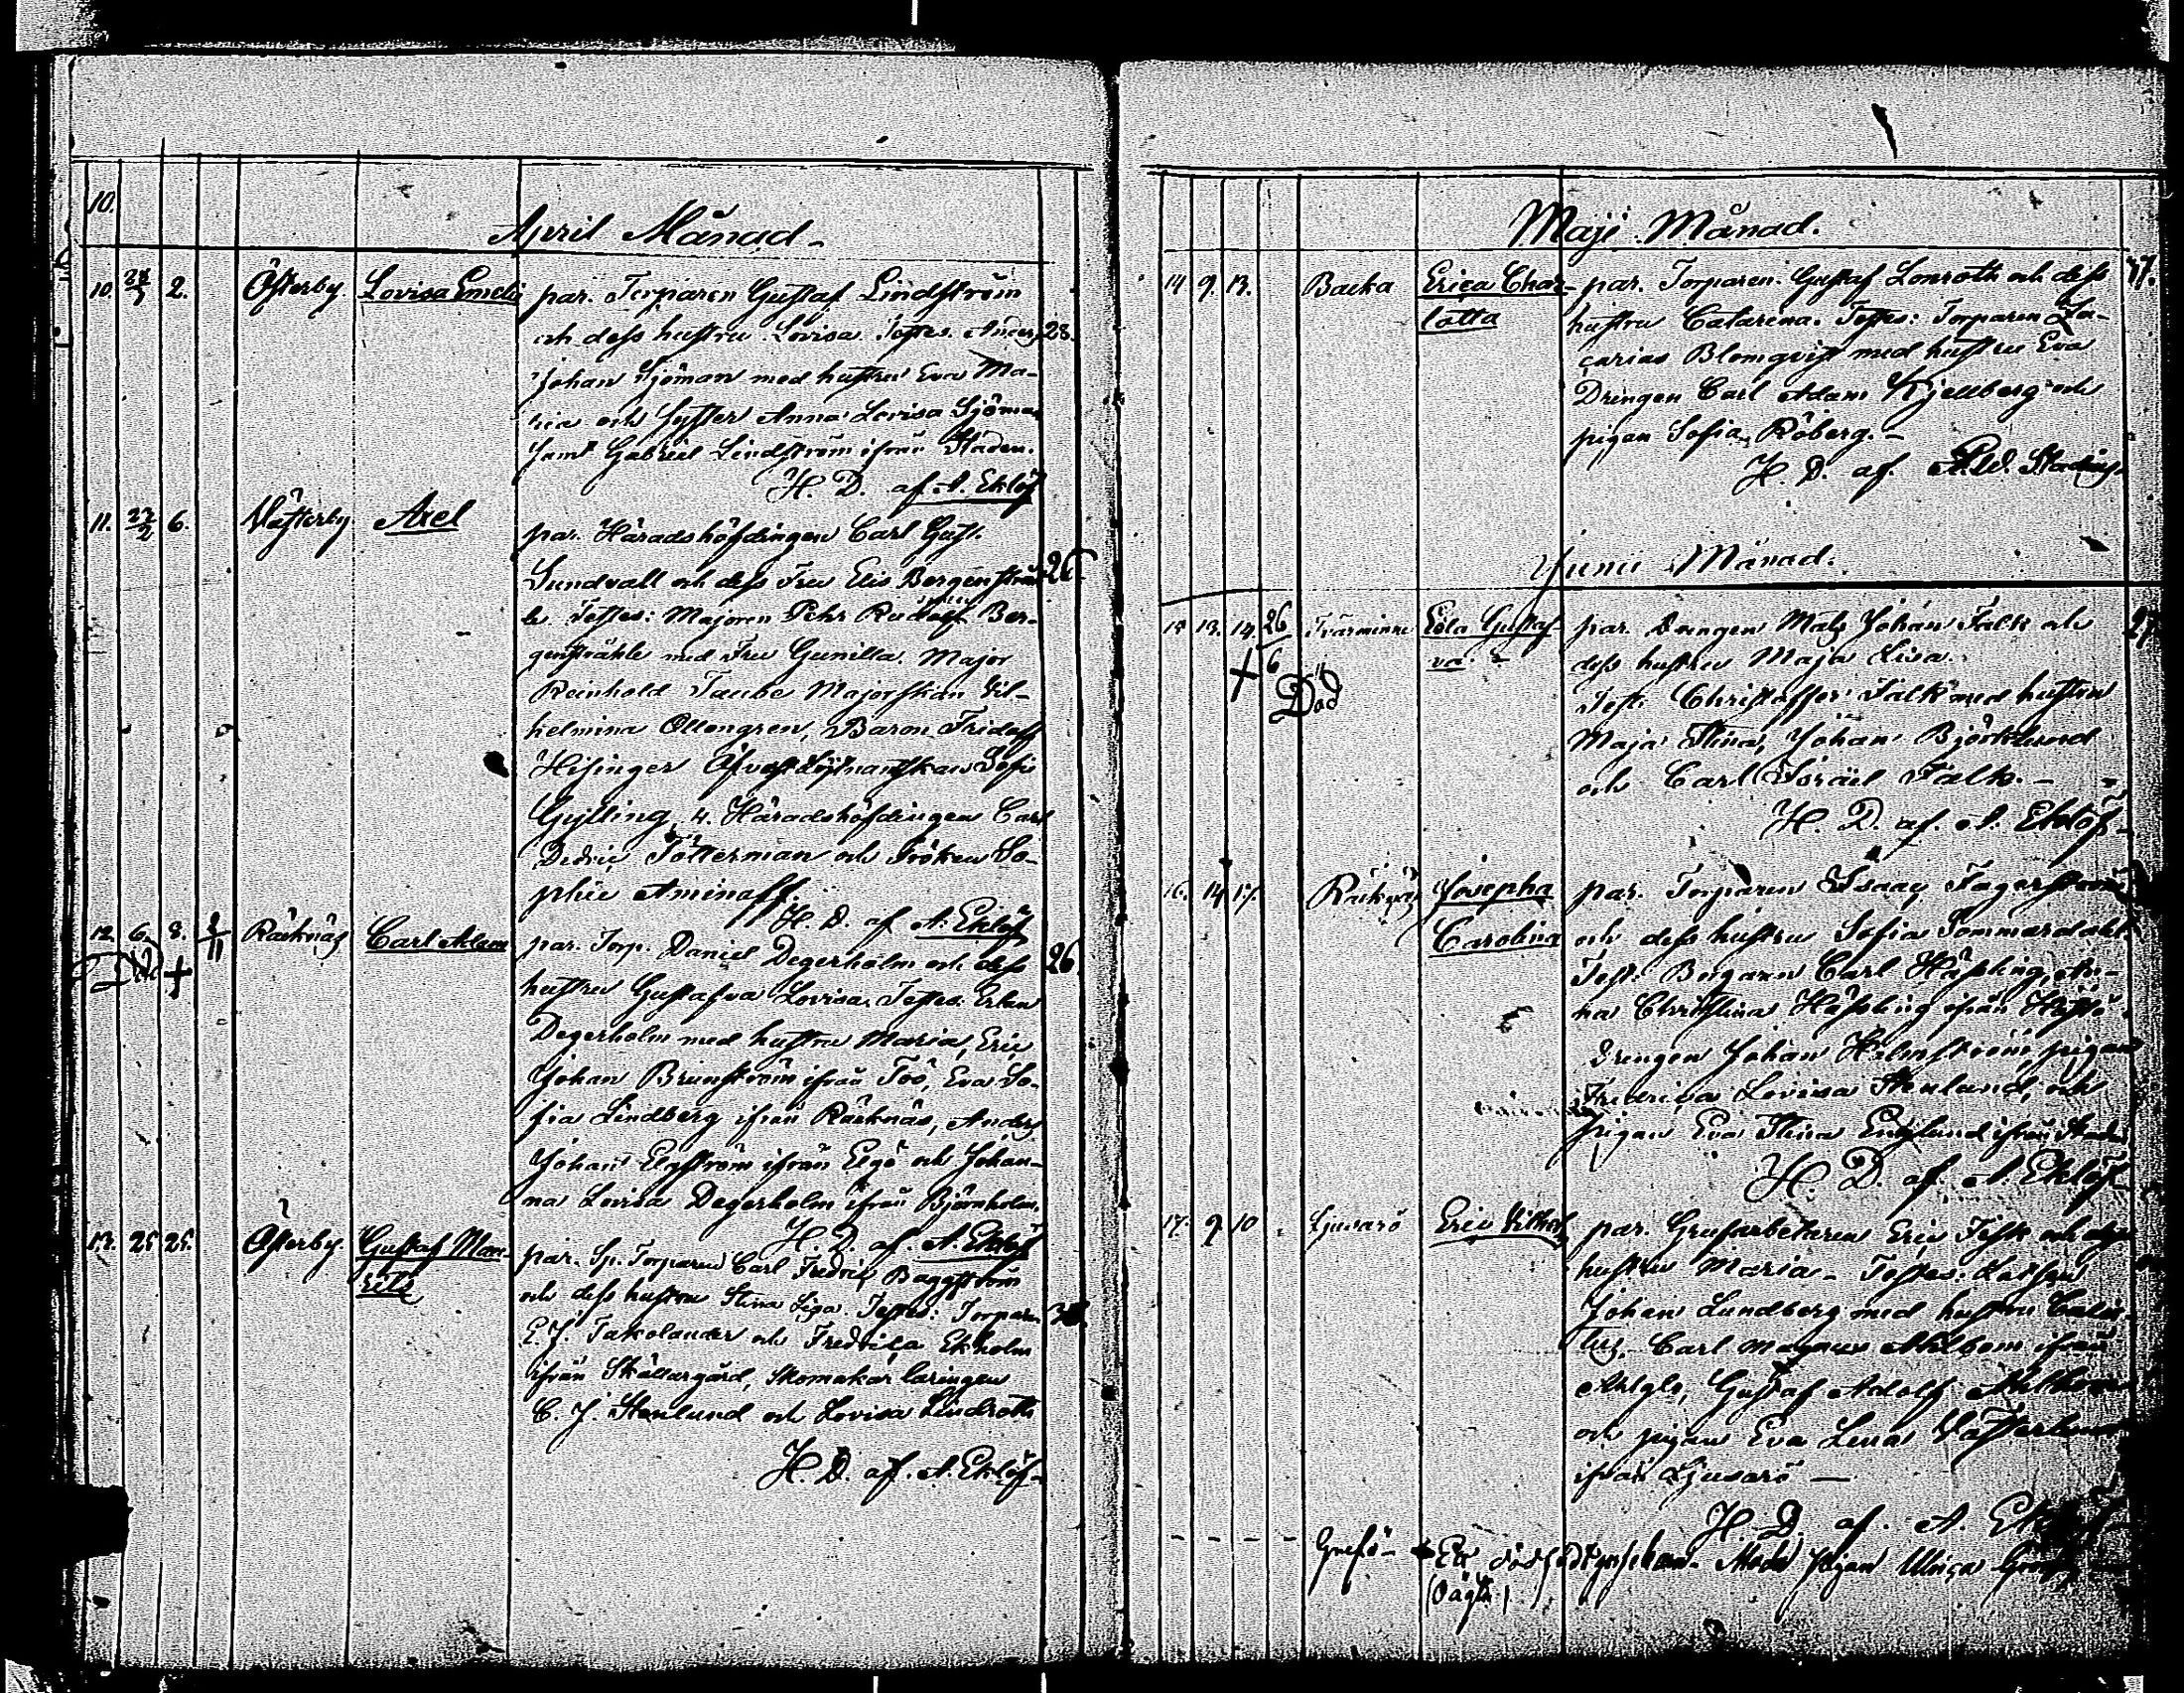 10.
April Månad
10. 28/3 2. Österby. Lovisa Emeli par. Torparen Gustaf Lindström
och dess hustru Lovisa Testes. Anders 28.
Johan Sjöman med hustru Eva Ma-
ria och Syster Anna Lovisa Sjöman
samt Gabriel Lindström ifrån Staden.
H. D. af A. Eklöf
11. 27/2 6. Västerby Axel par. Häradshöfdingen Carl Gust.
Sundvall och dess Fru Elis Bergenstråh- 26
le Testes: Majoren Pehr Rudolf Ber-
genstråhle med Fru Gunilla. Major
Reinhold Taube Majorskan Vil-
helmina Ollongren, Baron Fridolf
Hisinger Öfverstlöjtnantskan Sofie
Gylling, v. Häradshöfdingen Carl
Dedric Tötterman och Fröken So-
phie Aminoff.
H. D. af A. Eklöf
12. 6. 8. Räcknäs Carl Adam par. Torp. Daniel Degerholm och dess 26.
Död +
hustru Gustafva Lovisa. Testes: Erland
Degerholm med hustru Maria, Eric
Johan Brunström ifrån Toö, Eva So-
fia Lindberg ifrån Räcknäs, Anders
Johan Elgström ifrån Elgö och Johan-
na Lovisa Degerholm ifrån Björnholm.
H. D. af A. Eklöf
13. 25 25. Österby. Gustaf Mau- par. Sp. Torparen Carl Fredric Baggström
ritz och dess hustru Stina Lisa. Testes: Torparen
E. J. Takolander och Fredrica Ekholm
ifrån Skållargård, Skomakar läringen
C. J. Stenlund och Lovisa Lindroth
H. D. af A. Eklöf.
Maji Månad.
14 9. 13. Backa Erica Char- par. Torparen Gustaf Lonroth och dess 37.
lotta hustru Catarina. Testes: Torparen Za-
carias Blomqvist med hustru Eva
Drengen Carl Adam Kjellberg och
pigan Sofia Röberg.
H. D. af A.W. Stadius.
Junii Månad.
15 13. 14. 26/6 Tvärminne Eola Gustaf- par. Drengen Mats Johan Falk och 27
va + Död dess hustru Maja Lisa.
Test: Christoffer Falk med hustru
Maja Stina, Johan Björklund
och Carl Israel Falk.
H. D. af A. Eklöf
16. 14 17. Räcknäs Josepha par. Torparen Isaac Fagerström
Carolina och dess hustru Sofia Sommardahl
Test: Borgaren Carl Häsling, An-
na Christina Häsling ifrån Hästö.
Drengen Johan Holmström, pigan
Fredrica Lovisa Stenlund, och
pigan Eva Stina Englund ifrån Staden
H. D. af A. Eklöf
17. 9 10 Jussarö Eric Vilhelm par. Grufarbetaren Eric Fisk och dess
hustru Maria. Testes: Lotsen
Johan Lundberg med hustru
Carl Magnus Ahlbom ifrån
Gustaf Adolf Ahlbom
och pigan Eva Lena Västerlund
ifrån Jussarö
H. D. af A. Eklöf
Ett dödfödt gossebarn. Moder pigan Ulrica
(Oägta)